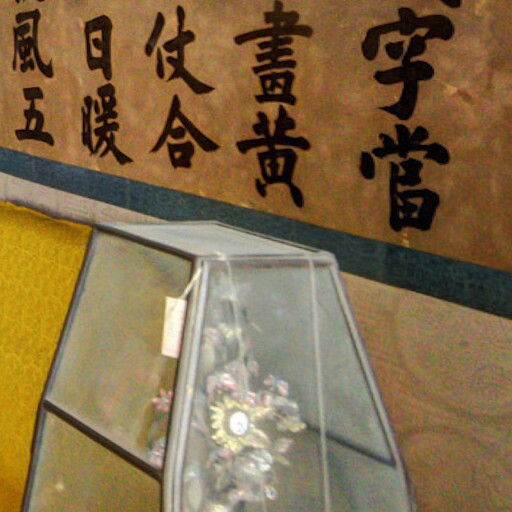 字當
畫黃
仗合
日暖
風五